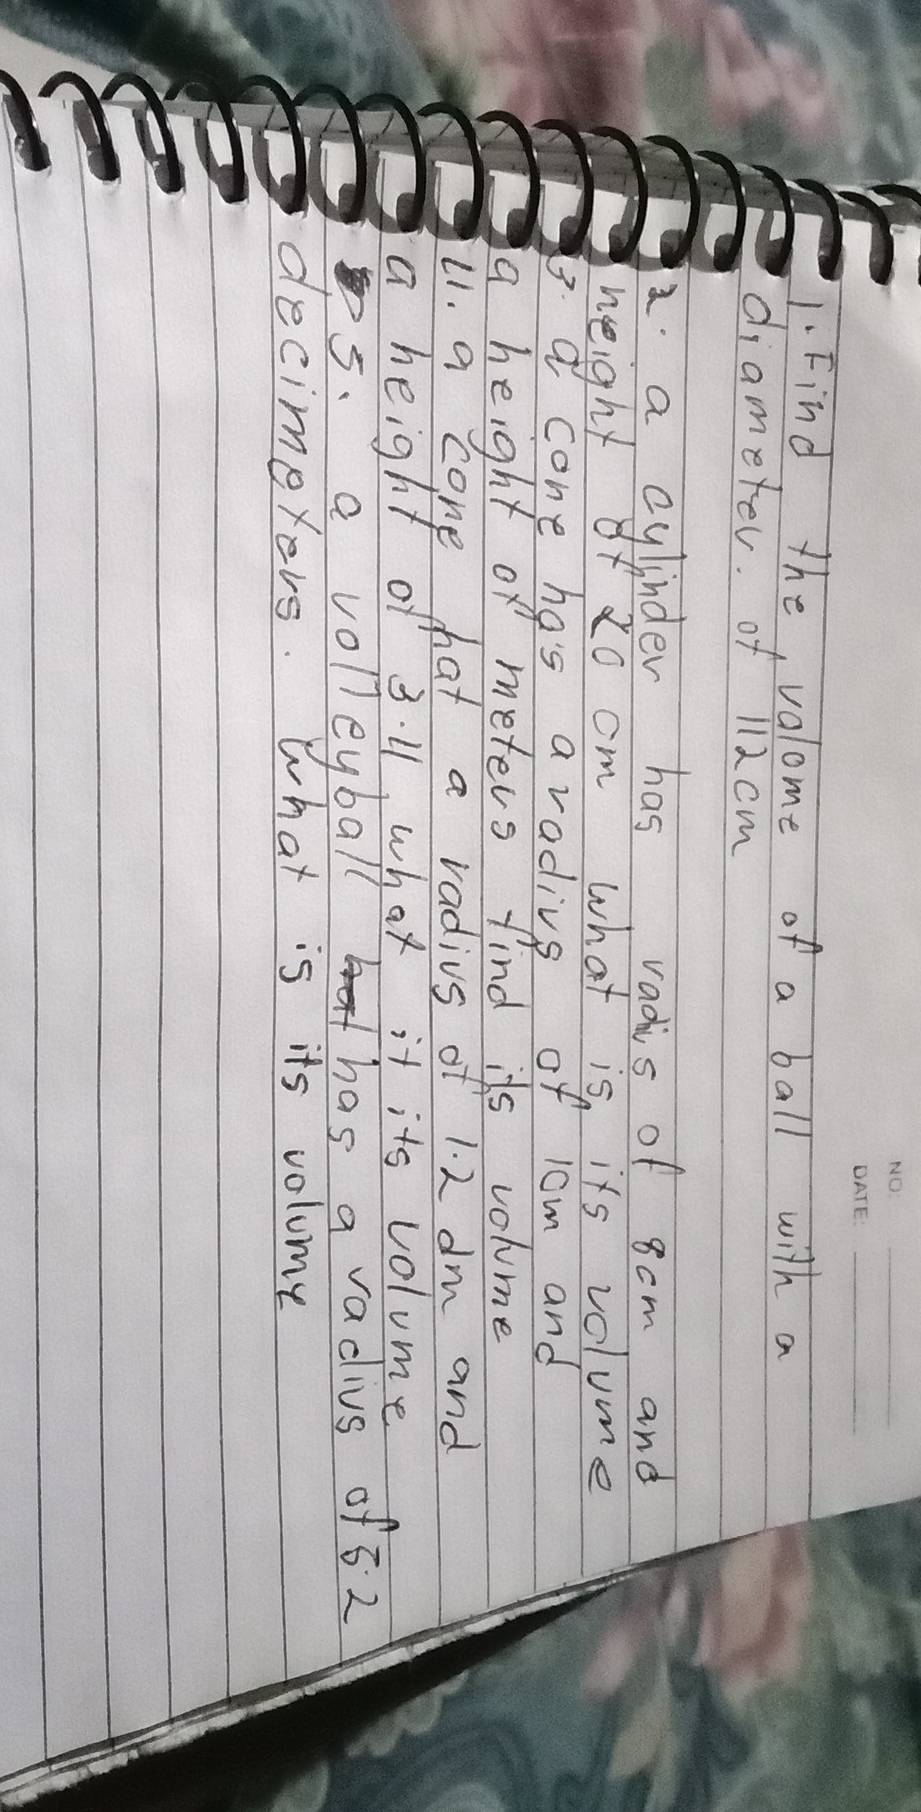 NO:
DATE:
1. Find the valome of a ball with a
diameter. of 112cm
2. a cylinder has radius of 8cm and
height of 20 cm what is its volume
3. a cone has a radius of 10m and
a height of meters find its volume
11. a cone hat a radius of 1.2 dm and
a height of 3.11 what it its volume
5. a volleyball has a radius of 5.2
decimeters. what is its volume